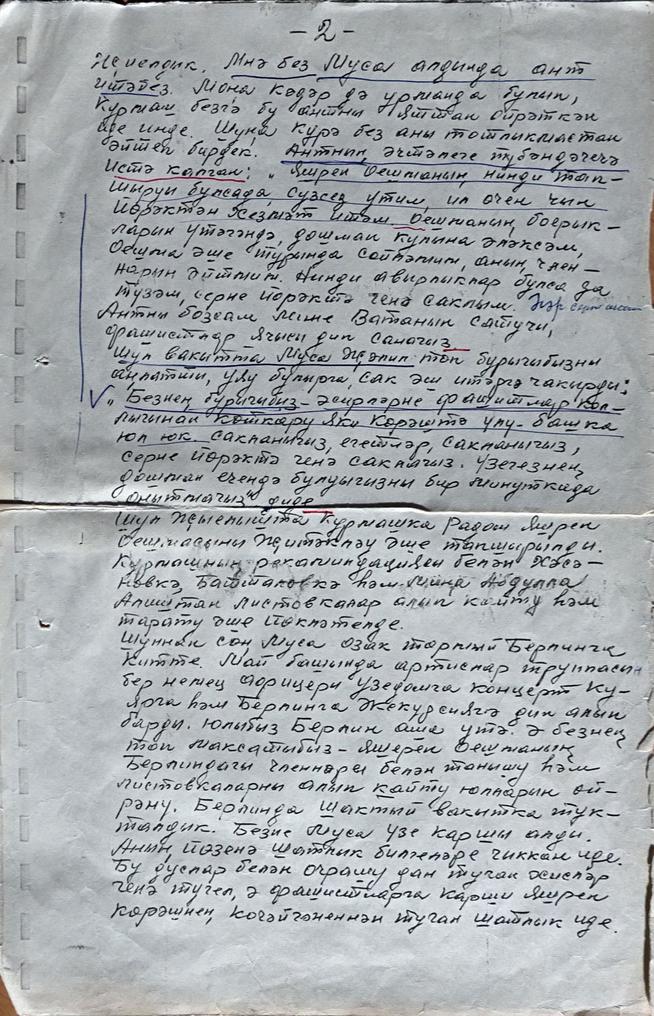 - 2 -
Җыелдык. Мнә без Муса алдында ант
итәбез. Мона кадәр дә урманда булып,
Курмаш безгә бу антны яттан өйрәткән
иде инде. Шуңа күрә без аны тотлыкмастан
әйтеп бирдек. Антның эчтәлеге түбәндәгечә
истә калган: „Яшрен оешманың нинди тап-
шыруи булсада, сүзсез үтим, ил өчен чын
йөрәктән хезмәт итәм. Оешманың боерык-
ларын үтәгәндә, дошман кулына эләксәм,
оешма эше турында сөйләмим, аның член-
нарын әйтмим. Нинди авырлыклар булса да
түзәм, серне йөрәктә генә саклыйм.
Антны бозсам мине Ватанын сатучы,
фашистлар ялчысы дип санагыз
Шул вакытта Муса Җәлил төп бурычыбызны
аңлатты, уяу булырга, сак эш итәргә чакырды:
„Безнең бурычыбыз - әсирләрне фашистлар кол-
лыгыннан коткару яки көрәштә үлү - башка
юл юк. Сакланыгыз, егетләр, сакланыгыз,
серне йөрәктә генә саклагыз. Үзегезнең
дошман өчендә булуыгызны бер минуткада
онытмагыз" диде
Шул җыелышта Курмашка Радом яшрен
оешмасыны җитәкләү эше тапшырылды.
Курмашның рекамендациясы белән Хәсә-
новкә, Батталовкә һәм миңа Абдулла
Алиштан листовкалар алып кайту һәм
тарату эше йөкләтелде.
Шуннан соң Муса озак тормый Берлинга
китте. Май башында артислар труппасын
бер немец афицеры үзедомга концерт ку-
ярга һәм Берлинга экскурсиягә дип алып
барды. юлыбыз Берлин аша үтә. Ә безнең
төп максатыбыз - яшерен оешманың
Берлиндагы членнәрен белән танышу һәм
листовкаларны алып кайту юлларын өй-
рәнү. Берлинда шактый вакытка тук-
талдык. Безне Муса үзе каршы алды.
Аның йөзенә шатлык билгеләре чыккан иде.
Бу дуслар белән очрашу дан туган хисләр
генә түгел, ә фашистларга карши яшрен
көрәшнең, көчәйгәненнән туган шатлык иде.